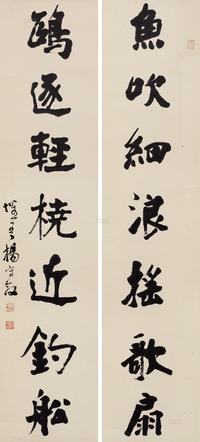 魚吹細浪搖歌扇
鷗逐輕橈近釣船
楊守敬